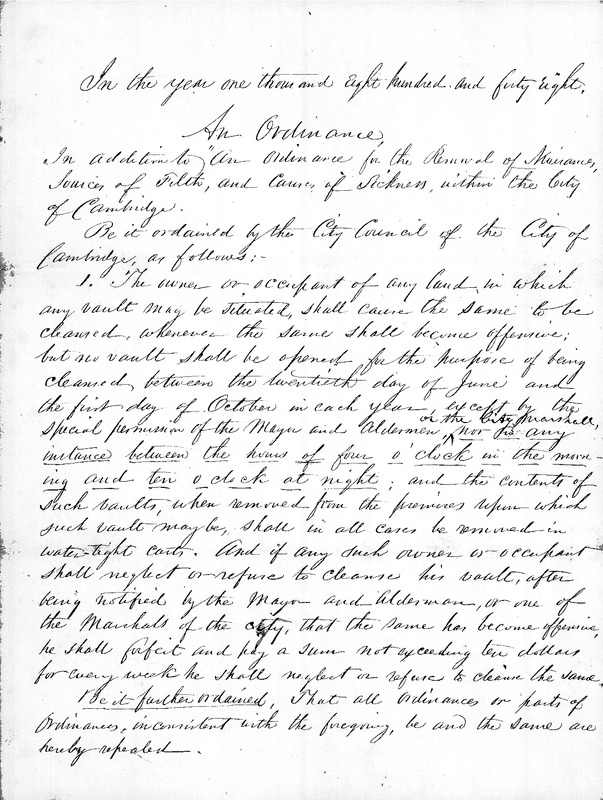 In the year one thousand Eight hundred and forty Eight.
An Ordinance,
In addition to "An Ordinance for the Removal of Nuisances,
Sources of Filth, and Causes of Sickness, within the City
of Cambridge.
Be it ordained by the City Council of the City of
Cambridge, as follows:-
1. The owner or occupant of any land, in which
any vault may be situated, shall cause the same to be
cleansed, whenever the same shall become offensive;
but no vault shall be opened for the purpose of being
cleansed, between the twentieth day of June and
the first day of October in each year, except by the
or the City Marshall,
special permission of the Mayor and Aldermen, nor in any
instance between the hours of four o clock in the morn-
ing and ten o clock at night; and the contents of
such vaults, when removed from the premises upon which
such vault maybe, shall in all cases be removed in
water-tight carts. And if any such owner or occupant
shall neglect or refuse to cleanse his vault, after
being notified by the Mayor and Alderman, or one of
the Marshals of the city, that the same has become offensive,
he shall forfeit and pay a sum not exceeding ten dollars
for every week he shall neglect or refuse to cleanse the same.
Be it further ordained, That all ordinances or parts of
Ordinances, inconsistent with the foregoing, be and the same are
hereby repealed.